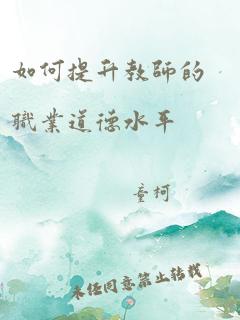 如何提升教师的
职业道德水平
童柯
未经同意禁止转载